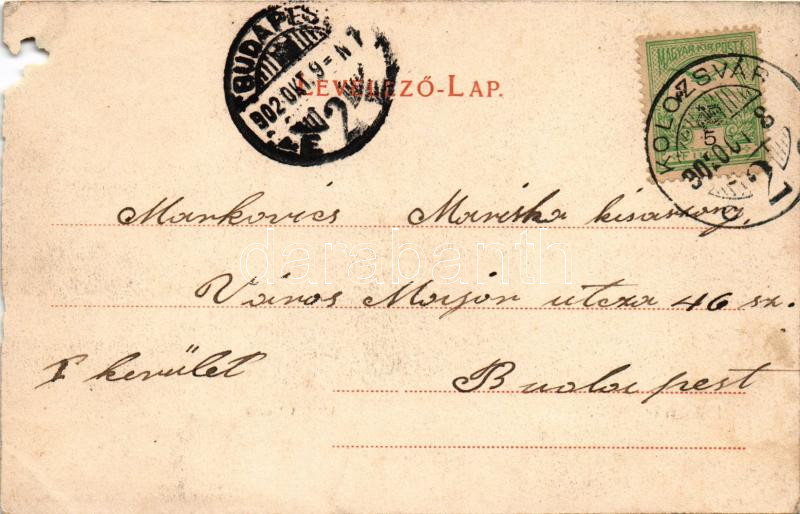 BUDAPEST
902 OKT. 9 - N 7
2
E
LEVELEZŐ-LAP.
MAGYAR KIR. POSTA
KOLOZSVÁR
5
902 OKT 8
2
Markovics Mariska kisasszony,
Város Major utcza 46 sz.
I kerület Budapest
darabanth